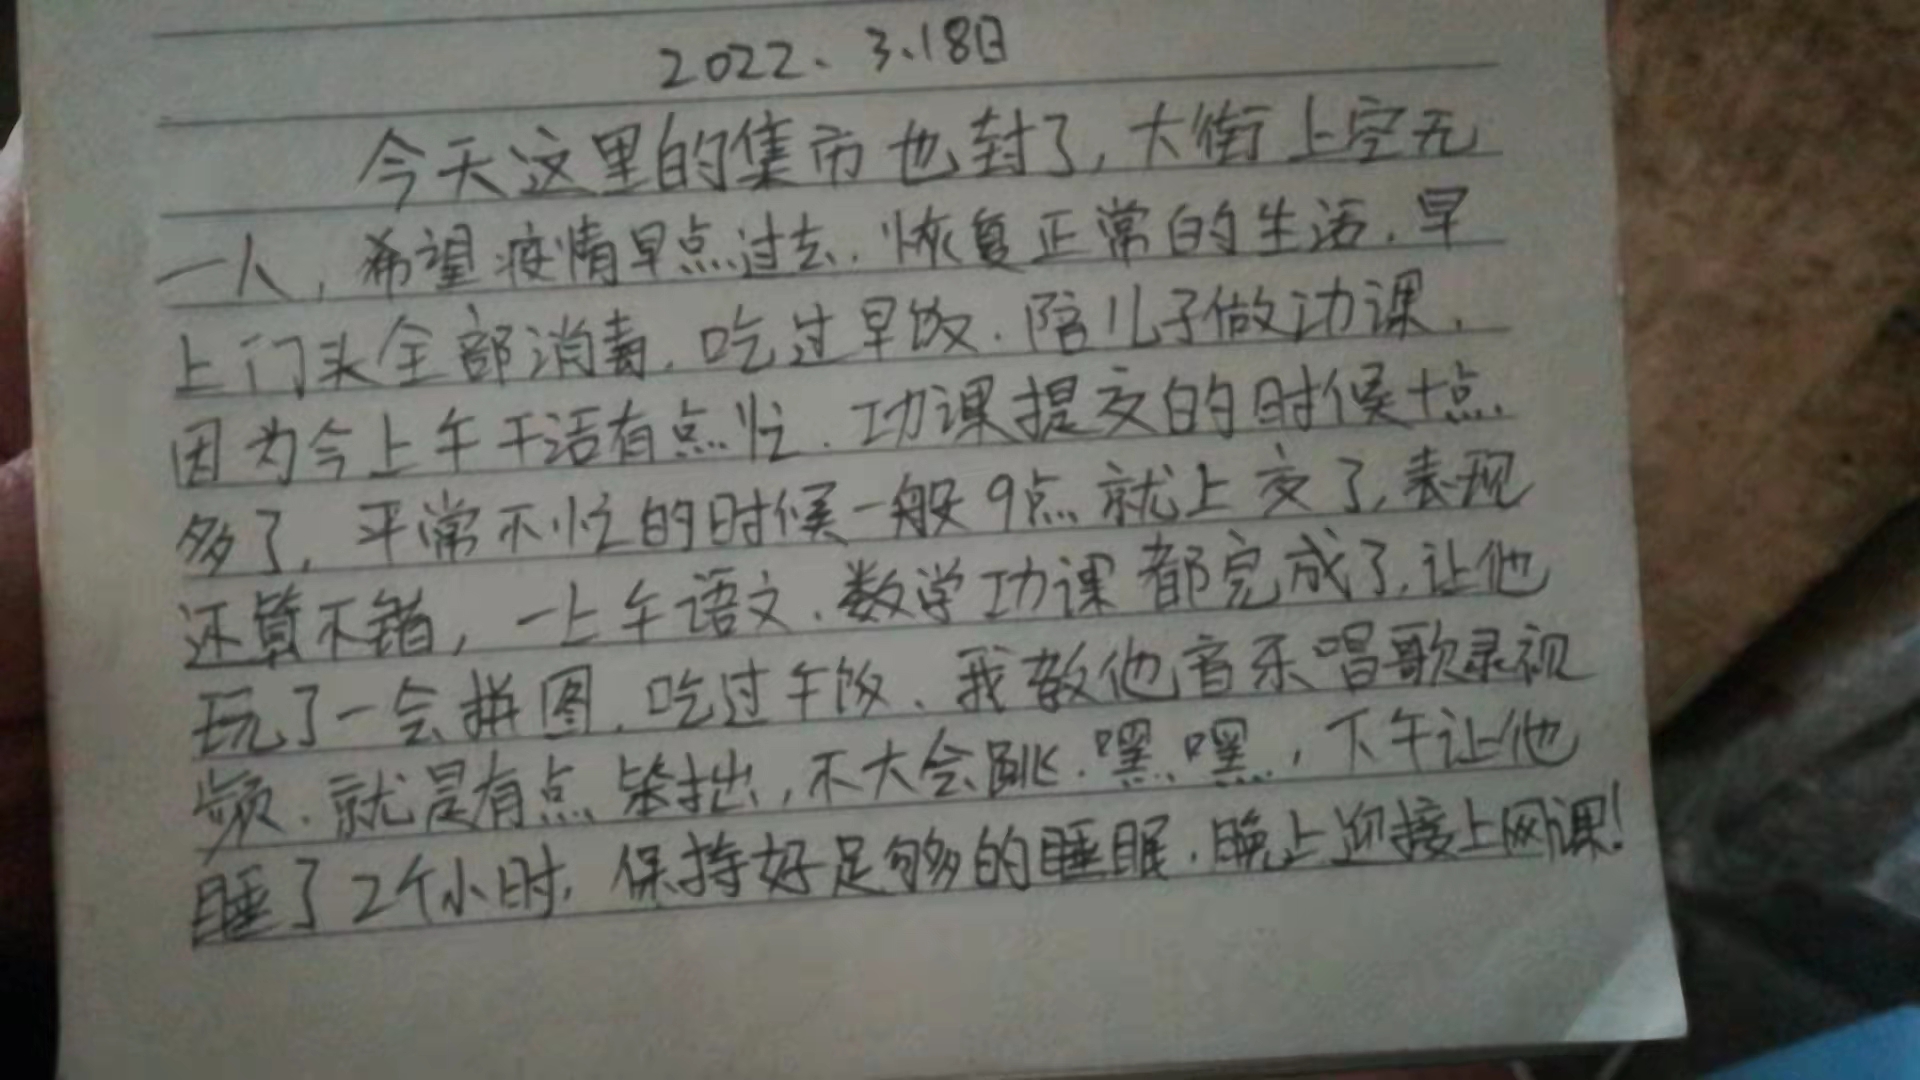 2022、3.18日
今天这里的集市也封了,大街上空无
一人,希望疫情早点过去.恢复正常的生活.早
上门头全部消毒.吃过早饭.陪儿子做功课.
因为今上午干活有点忙.功课提交的时候十点
多了,平常不忙的时候一般9点就上交了,表现
还算不错,一上午语文.数学功课都完成了,让他
玩了一会拼图.吃过午饭、我教他音乐唱歌录视
频.就是有点笨拙,不大会跳.嘿嘿,下午让他
睡了2个小时,保持好足够的睡眠.晚上迎接上网课!